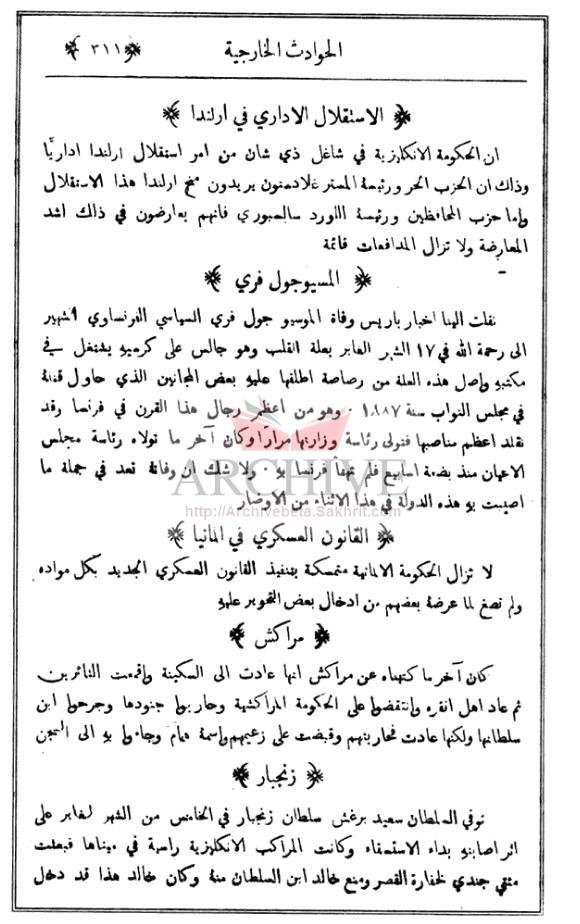 الحوادث الخارجية
﴿٣١١﴾
﴿ الاستقلال الاداري في ارلندا ﴾
ان الحكومة الانكليزية في شاغل ذي شان من امر استقلال ارلندا اداريًّا
وذلك ان الحزب الحر ورئيسهُ المستر غلادستون يريدون منح ارلندا هذا الاستقلال
واما حزب المحافظين ورئيسهُ اللورد سالسبوري فانهم يعارضون في ذلك اشد
المعارضة ولا تزال المدافعات قائمة
﴿ المسيوجول فري ﴾
نقلت الينا اخبار باريس وفاة الموسيو جول فري السياسي الفرنساوي الشهير
الى رحمة الله في ١٧ الشهر الغابر بعلة القلب وهو جالس على كرسيهِ يشتغل في
مكتبهِ واصل هذه العلة من رصاصة اطلقها عليهِ بعض المجانين الذي حاول قتلهُ
في مجلس النواب سنة ١٨٨٧ . وهو من اعظم رجال هذا القرن في فرنسا وقد
تقلد اعظم مناصبها فتولى رئاسة وزارتها مرارًا وكان آخر ما تولاه رئاسة مجلس
الاعيان منذ بضعة اسابيع فلم تتهنأ فرنسا بهِ . ولا شك ان وفاتهُ تعد في جملة ما
اصيبت بهِ هذه الدولة في هذا الاثناء من الاوضار
ARCHIVE
http://Archivebeta.Sakhrit.com
﴿ القانون العسكري في المانيا ﴾
لا تزال الحكومة الالمانية متمسكة بتنفيذ القانون العسكري الجديد بكل مواده
ولم تصغ لما عرضهُ بعضهم من ادخال بعض التحوير عليهِ
﴿ مراكش ﴾
كان آخر ما كتبناه عن مراكش انها عادت الى السكينة واقمعت الثائرين
ثم عاد اهل انقره وانتقضوا على الحكومة المراكشية وحاربوا جنودها وجرحوا ابن
سلطانها ولكنها عادت فحاربتهم وقبضت على زعيمهم واسمهُ همام وجاءوا بهِ الى السجن
﴿ زنجبار ﴾
توفي السلطان سعيد برغش سلطان زنجبار في الخامس من الشهر الغابر على
اثر اصابتهِ بداء الاستسقاء وكانت المراكب الانكليزية راسية في ميناها فبعثت
مئتي جندي لخفارة القصر ومنع خالد ابن السلطان منهُ وكان خالد هذا قد دخل